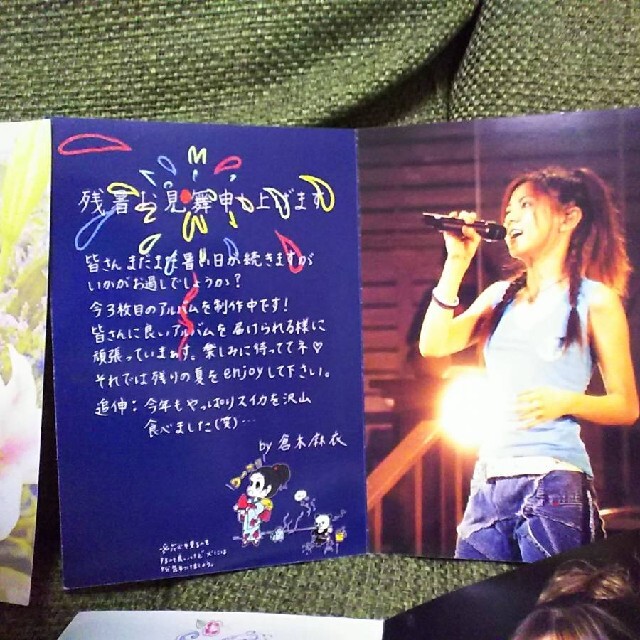 残暑お見舞申し上げます
皆さんまだまだ暑い日が続きますが
いかがお過しでしょうか?
今3枚目のアルバムを制作中です!
皆さんに良いアルバムを届けられる様に
頑張っています。楽しみに待っててネ♡
それでは残りの夏をenjoyして下さい。
追伸:今年もやっぱりスイカを沢山
食べました(笑)…
by 倉木麻衣